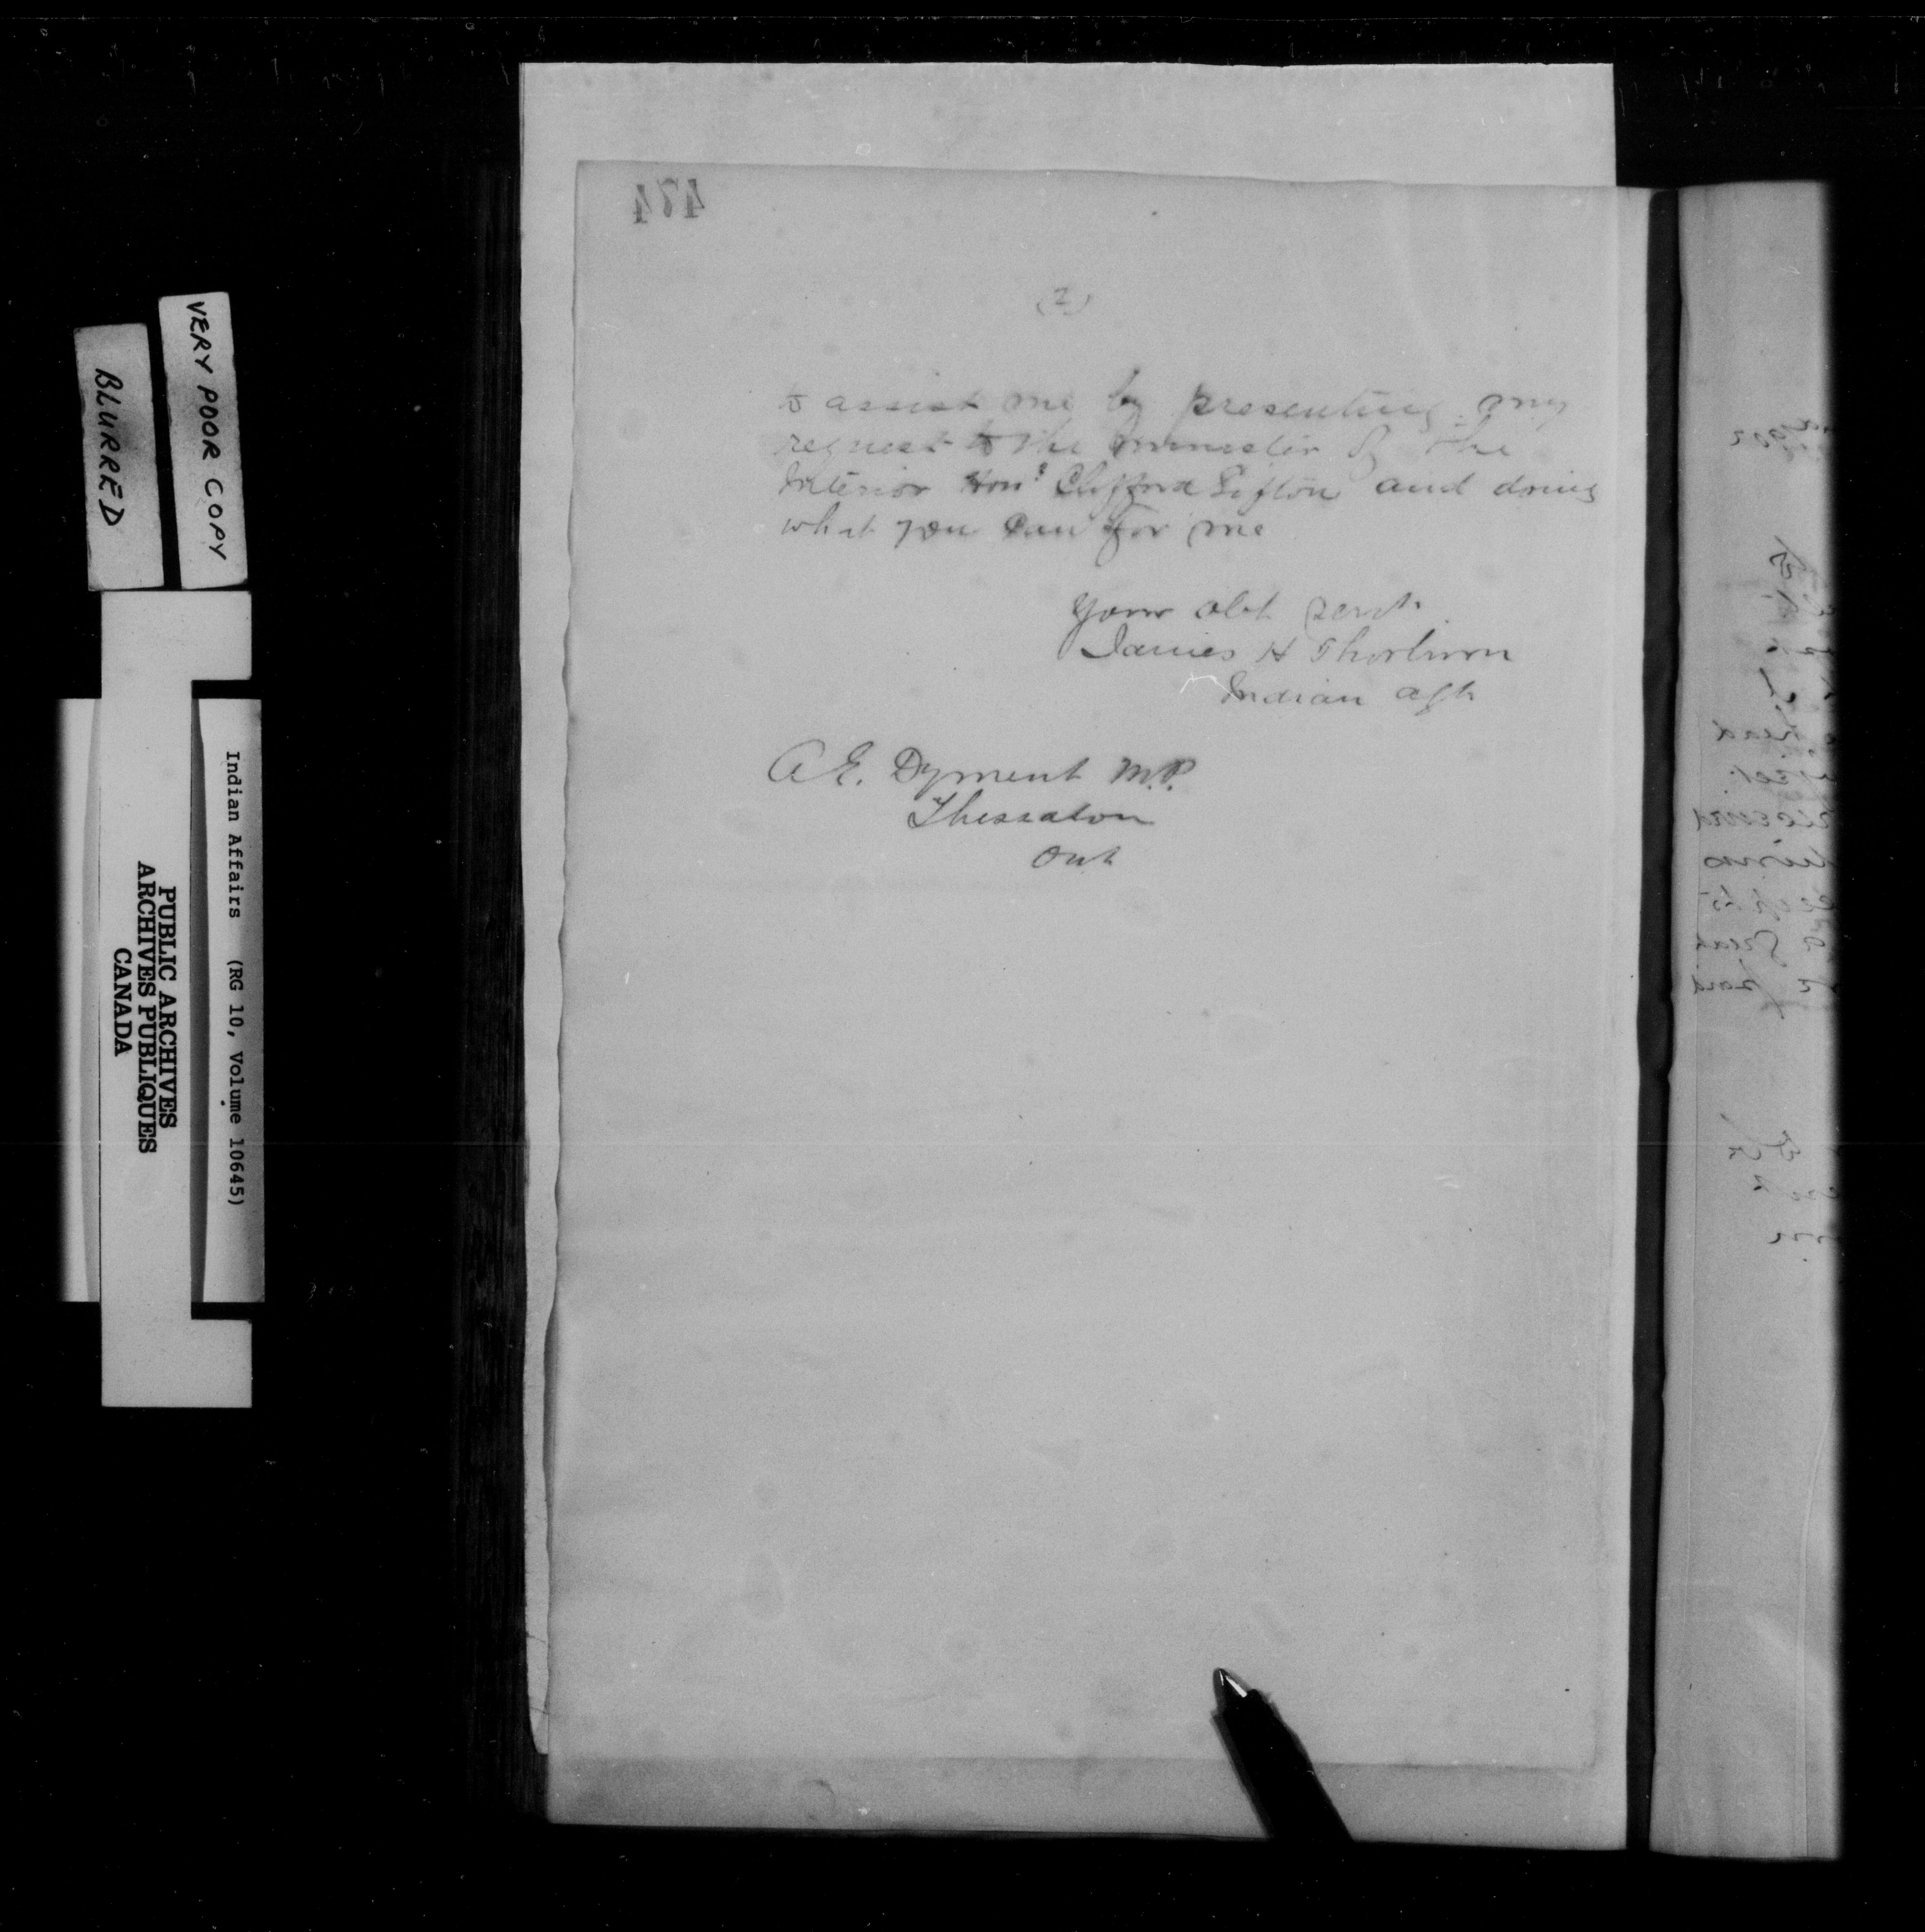 474
(2)
to assist me by presenting my
request to the minister of the
Interior Hon: Clifford Sifton and doing
what you can for me
Your obt servt
James H Thorburn
Indian Agt
A.E. Dyment M.P.
Thessalon
Ont
VERY POOR COPY
BLURRED
Indian Affairs (RG 10, Volume 10645)
PUBLIC ARCHIVES
ARCHIVES PUBLIQUES
CANADA